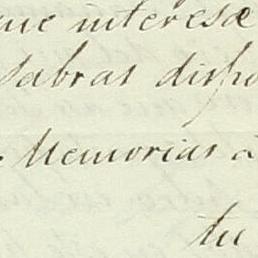 que interesa
sabras dispo
Memorias a
tu